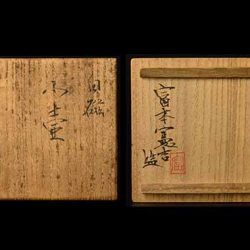 白磁
小壷
富本憲吉
造